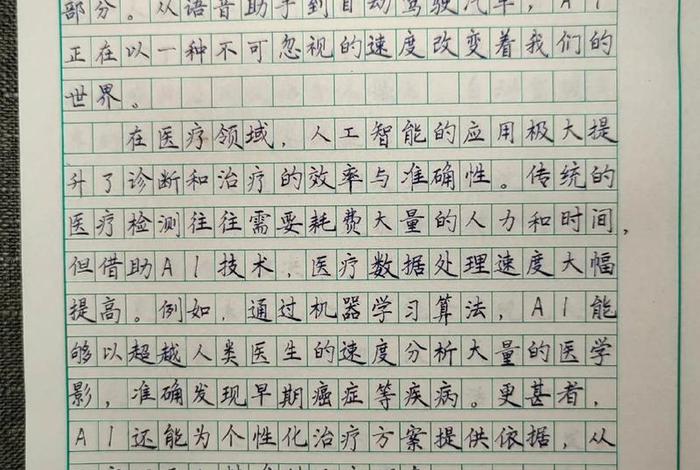 部分。从语音助手到自动驾驶汽车，AI
正在以一种不可忽视的速度改变着我们的
世界。
在医疗领域，人工智能的应用极大提
升了诊断和治疗的效率与准确性。传统的
医疗检测往往需要耗费大量的人力和时间，
但借助AI技术，医疗数据处理速度大幅
提高。例如，通过机器学习算法，AI能
够以超越人类医生的速度分析大量的医学
影，准确发现早期癌症等疾病。更甚者，
AI还能为个性化治疗方案提供依据，从